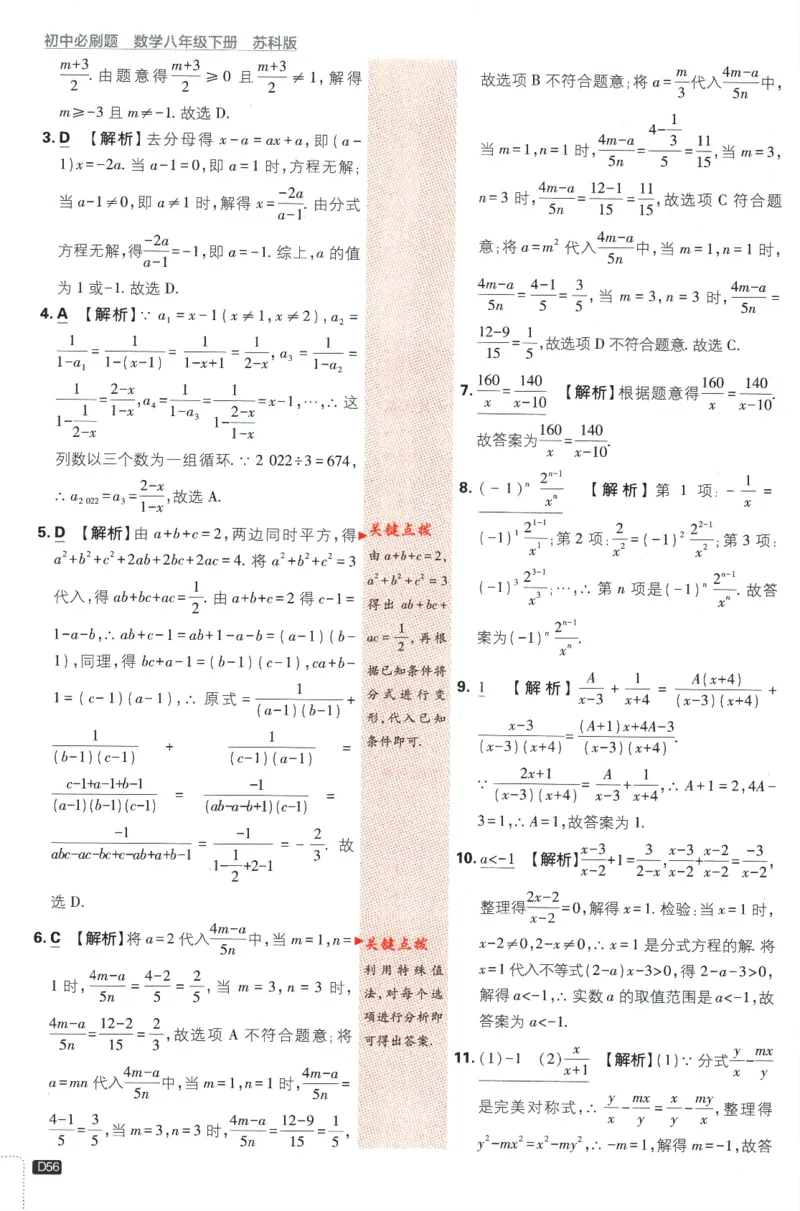 初中必刷题 数学八年级下册 苏科版
m+3/2. 由题意得 m+3/2 ≥0 且 m+3/2 ≠1, 解得
m≥-3 且 m≠-1. 故选 D.
3. D 【解析】去分母得 x-a=ax+a, 即 (a-
1)x=-2a. 当 a-1=0, 即 a=1 时, 方程无解;
当 a-1≠0, 即 a≠1 时, 解得 x=-2a/(a-1). 由分式
方程无解, 得 -2a/(a-1)=-1, 即 a=-1. 综上, a 的值
为 1 或-1. 故选 D.
4. A 【解析】∵ a₁=x-1(x≠1, x≠2), a₂=
1/(1-a₁)=1/(1-(x-1))=1/(1-x+1)=1/(2-x), a₃=1/(1-a₂)=
1/(1-1/(2-x))=(2-x)/(1-x), a₄=1/(1-a₃)=1/(1-(2-x)/(1-x))=x-1, …, ∴ 这
列数以三个数为一组循环. ∵ 2 022÷3=674,
∴ a₂ ₀₂₂=a₃=(2-x)/(1-x), 故选 A.
5. D 【解析】由 a+b+c=2, 两边同时平方, 得
a²+b²+c²+2ab+2bc+2ac=4. 将 a²+b²+c²=3
代入, 得 ab+bc+ac=1/2. 由 a+b+c=2 得 c-1=
1-a-b, ∴ ab+c-1=ab+1-a-b=(a-1)(b-
1), 同理, 得 bc+a-1=(b-1)(c-1), ca+b-
1=(c-1)(a-1), ∴ 原式=1/((a-1)(b-1))+
1/((b-1)(c-1))+1/((c-1)(a-1))=
(c-1+a-1+b-1)/((a-1)(b-1)(c-1))=-1/((ab-a-b+1)(c-1))=
-1/(abc-ac-bc+c-ab+a+b-1)=-1/(1-1/2+2-1)=-2/3. 故
选 D.
6. C 【解析】将 a=2 代入 (4m-a)/5n 中, 当 m=1, n=
1 时, (4m-a)/5n=(4-2)/5=2/5, 当 m=3, n=3 时,
(4m-a)/5n=(12-2)/15=2/3, 故选项 A 不符合题意; 将
a=mn 代入 (4m-a)/5n 中, 当 m=1, n=1 时, (4m-a)/5n=
(4-1)/5=3/5, 当 m=3, n=3 时, (4m-a)/5n=(12-9)/15=1/5,
关键点拨
由 a+b+c=2,
a²+b²+c²=3
得出 ab+bc+
ac=1/2, 再根
据已知条件将
分式进行变
形, 代入已知
条件即可.
关键点拨
利用特殊值
法, 对每个选
项进行分析即
可得出答案.
故选项 B 不符合题意; 将 a=m/3 代入 (4m-a)/5n 中,
当 m=1, n=1 时, (4m-a)/5n=(4-1/3)/5=11/15, 当 m=3,
n=3 时, (4m-a)/5n=(12-1)/15=11/15, 故选项 C 符合题
意; 将 a=m² 代入 (4m-a)/5n 中, 当 m=1, n=1 时,
(4m-a)/5n=(4-1)/5=3/5, 当 m=3, n=3 时, (4m-a)/5n=
(12-9)/15=1/5, 故选项 D 不符合题意. 故选 C.
7. 160/x=140/(x-10) 【解析】根据题意得 160/x=140/(x-10).
故答案为 160/x=140/(x-10).
8. (-1)ⁿ 2ⁿ⁻¹/xⁿ 【解析】第 1 项: -1/x=
(-1)¹ 2¹⁻¹/x¹; 第 2 项: 2/x²=(-1)² 2²⁻¹/x²; 第 3 项:
(-1)³ 2³⁻¹/x³; …, ∴ 第 n 项是 (-1)ⁿ 2ⁿ⁻¹/xⁿ. 故答
案为 (-1)ⁿ 2ⁿ⁻¹/xⁿ.
9. 1 【解析】A/(x-3)+1/(x+4)=A(x+4)/((x-3)(x+4))+
(x-3)/((x-3)(x+4))=((A+1)x+4A-3)/((x-3)(x+4)).
∵ (2x+1)/((x-3)(x+4))=A/(x-3)+1/(x+4), ∴ A+1=2, 4A-
3=1, ∴ A=1, 故答案为 1.
10. a<-1 【解析】(x-3)/(x-2)+1=3/(2-x), (x-3)/(x-2)+(x-2)/(x-2)=-3/(x-2),
整理得 (2x-2)/(x-2)=0, 解得 x=1. 检验: 当 x=1 时,
x-2≠0, 2-x≠0, ∴ x=1 是分式方程的解. 将
x=1 代入不等式 (2-a)x-3>0, 得 2-a-3>0,
解得 a<-1, ∴ 实数 a 的取值范围是 a<-1, 故
答案为 a<-1.
11. (1)-1 (2) x/(x+1) 【解析】(1)∵ 分式 y/x-mx/y
是完美对称式, ∴ y/x-mx/y=x/y-my/x, 整理得
y²-mx²=x²-my², ∴ -m=1, 解得 m=-1, 故答
D56